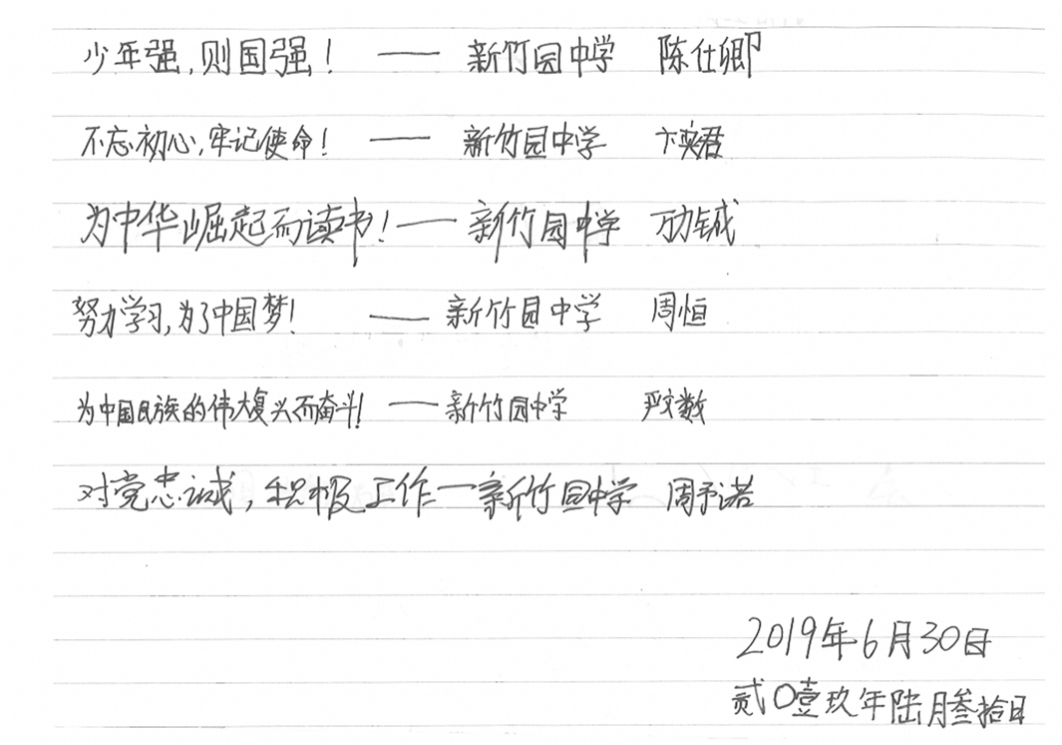 少年强,则国强! —— 新竹园中学 陈仕卿
不忘初心,牢记使命! —— 新竹园中学 卞奕君
为中华崛起而读书! —— 新竹园中学 万劲铖
努力学习,为了中国梦! —— 新竹园中学 周恒
为中国民族的伟大复兴而奋斗! —— 新竹园中学 严文数
对党忠诚,积极工作 — 新竹园中学 周予诺
2019年6月30日
贰0壹玖年陆月叁拾日